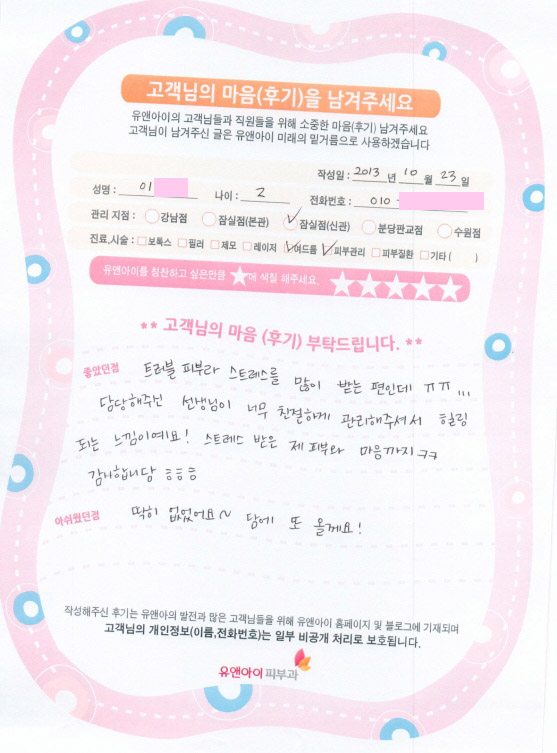 고객님의 마음(후기)을 남겨주세요
유앤아이의 고객님들과 직원들을 위해 소중한 마음(후기) 남겨주세요
고객님이 남겨주신 글은 유앤아이 미래의 밑거름으로 사용하겠습니다
작성일 : 2013 년 10 월 23 일
성명 : 이 나이 : 2 전화번호 : 010 -
관리 지점 : 강남점 잠실점(본관) 잠실점(신관) 분당판교점 수원점
진료,시술 : 보톡스 필러 제모 레이저 여드름 피부관리 피부질환 기타 ( )
유앤아이를 칭찬하고 싶은만큼 ★에 색칠 해주세요.
** 고객님의 마음 (후기) 부탁드립니다. **
좋았던점 트러블 피부라 스트레스를 많이 받는 편인데 ㅠㅠ...
담당해주신 선생님이 너무 친절하게 관리해주셔서 힐링
되는 느낌이예요! 스트레스 받은 제 피부와 마음까지 ㅋㅋ
감사합니당 ㅎㅎㅎ
아쉬웠던점 딱히 없었어요~ 담에 또 올께요!
작성해주신 후기는 유앤아의 발전과 많은 고객님들을 위해 유앤아이 홈페이지 및 블로그에 기재되며
고객님의 개인정보(이름,전화번호)는 일부 비공개 처리로 보호됩니다.
유앤아이피부과